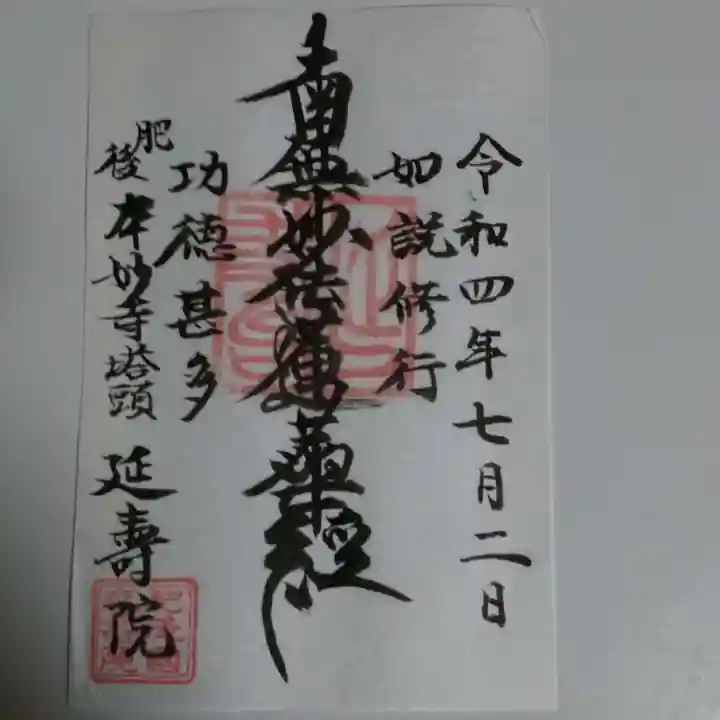 令和四年七月二日
如説修行
南無妙法蓮華経
功徳甚多
肥後本妙寺塔頭延壽院